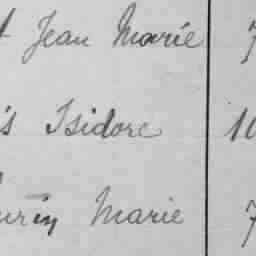 Jean Marie 7
Isidore 10
Marie 7